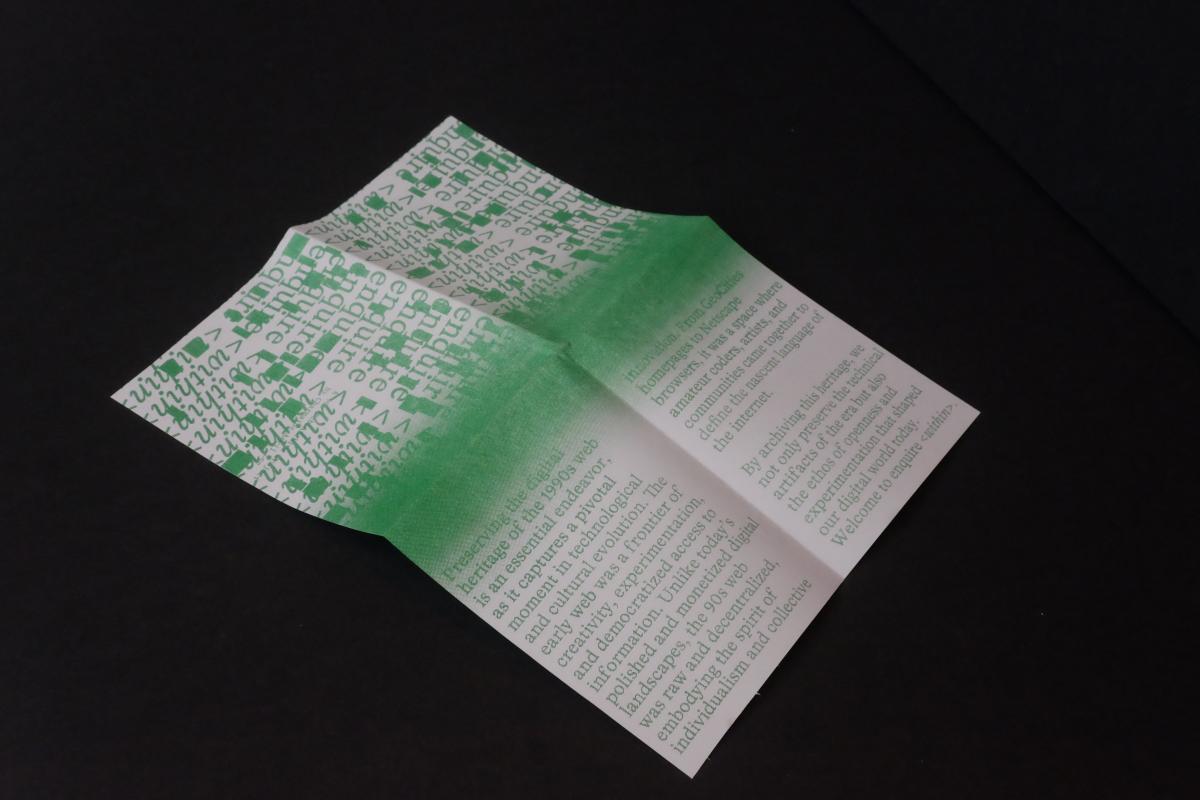 enquire
<within>
Preserving the digital
heritage of the 1990s web
is an essential endeavor,
as it captures a pivotal
moment in technological
and cultural evolution. The
early web was a frontier of
creativity, experimentation,
and democratized access to
information. Unlike today's
polished and monetized digital
landscapes, the 90s web
was raw and decentralized,
embodying the spirit of
individualism and collective
From GeoCities
homepages to Netscape
browsers, it was a space where
amateur coders, artists, and
communities came together to
define the nascent language of
the internet.
By archiving this heritage, we
not only preserve the technical
artifacts of the era but also
the ethos of openness and
experimentation that shaped
our digital world today.
Welcome to enquire <within>.